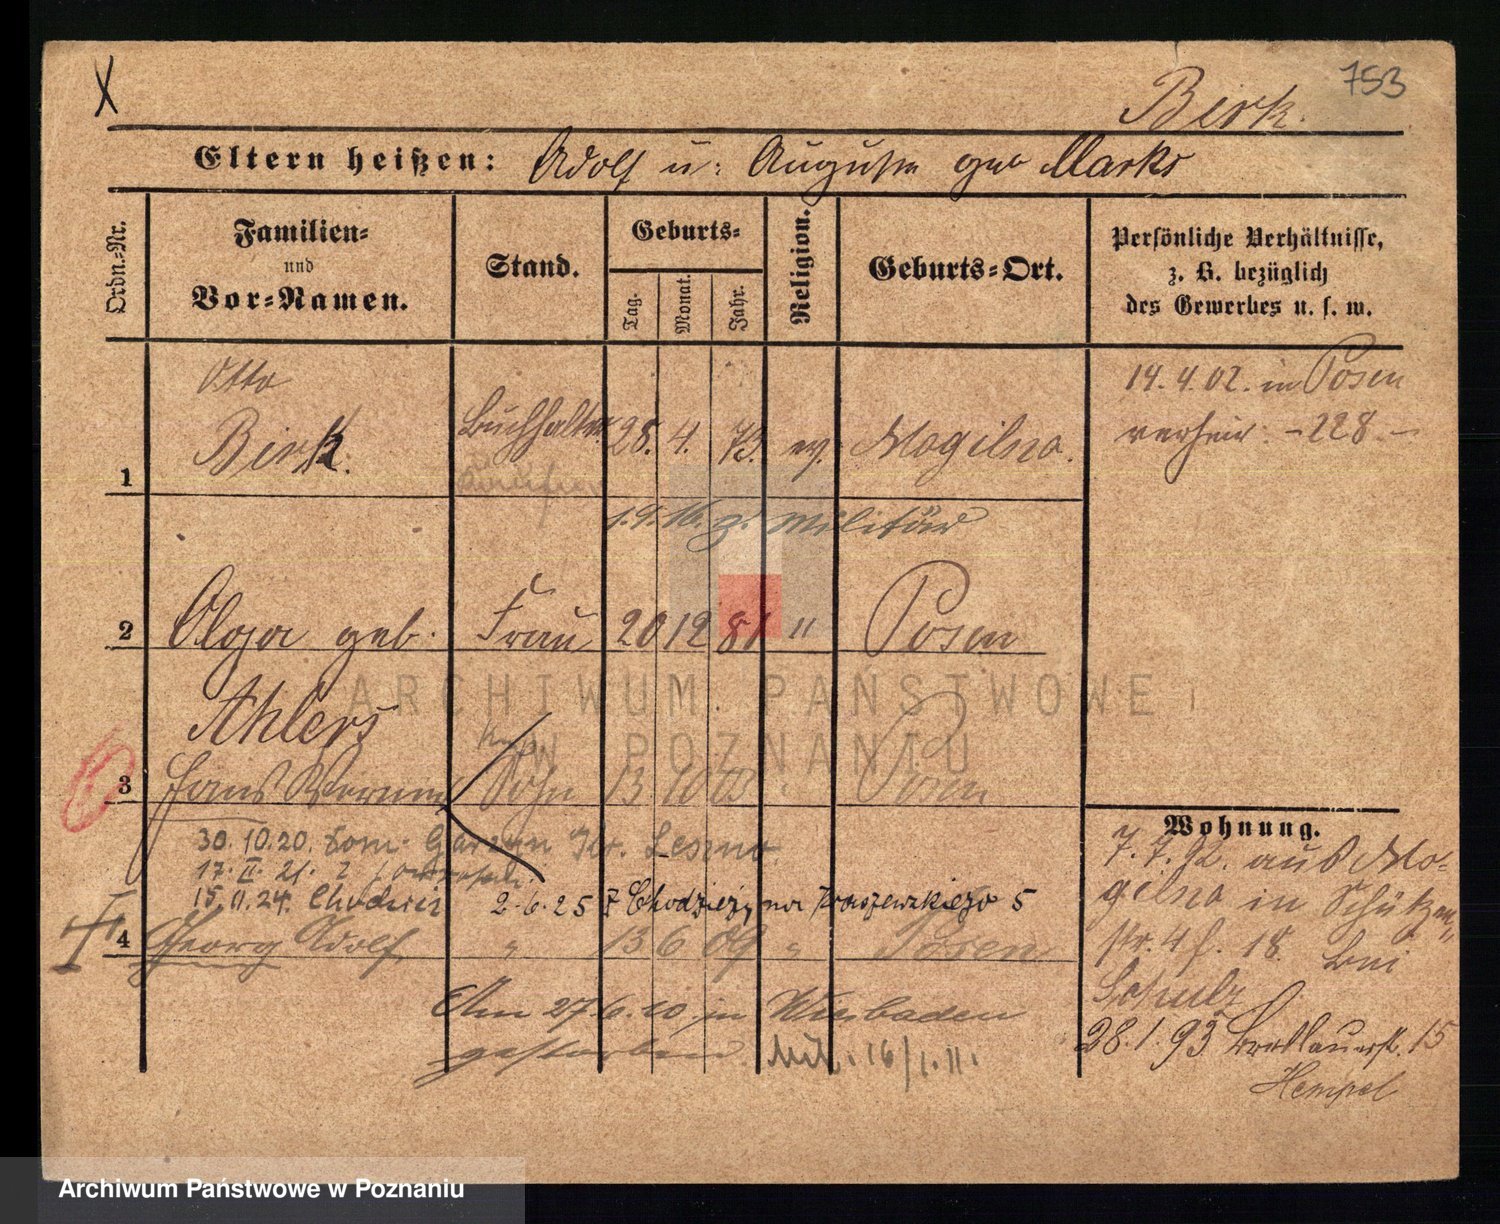 X
753
Birk.
Eltern heißen: Adolf u: Auguste geb Marks
Ordn.-Nr.
Familien- und Vor-Namen.
Stand.
Geburts-
Tag.
Monat.
Jahr.
Religion.
Geburts-Ort.
Persönliche Verhältnisse,
z. B. bezüglich
des Gewerbes u. s. w.
Otto
1 Birk. Buchhalter 28. 4. 73. ev. Mogilno.
14. 4. 02. in Posen
verheir: - 228. -
1.9.16. z. Militär
2 Olga geb. Frau 20 12 81 " Posen
Ahlers
3 Hans Werner Sohn 13 10 Posen
30. 10. 20. Dom. Garzyn Kr. Leszno.
17. II. 21. z
15. 11. 24. Chodzież 2.6.25 z Chodzieży, 5
4 Georg Adolf " 13 6 09 " Posen
Am 27.6.10 in Wiesbaden
gestorben. 16/1.11.
Wohnung.
7. 7. 92. aus Mo-
gilno in Schützen-
str. 4 18. bei
Schulz
28. 1. 93 Breslauerst. 15
Hempel
ARCHIWUM PAŃSTWOWE
W POZNANIU
Archiwum Państwowe w Poznaniu